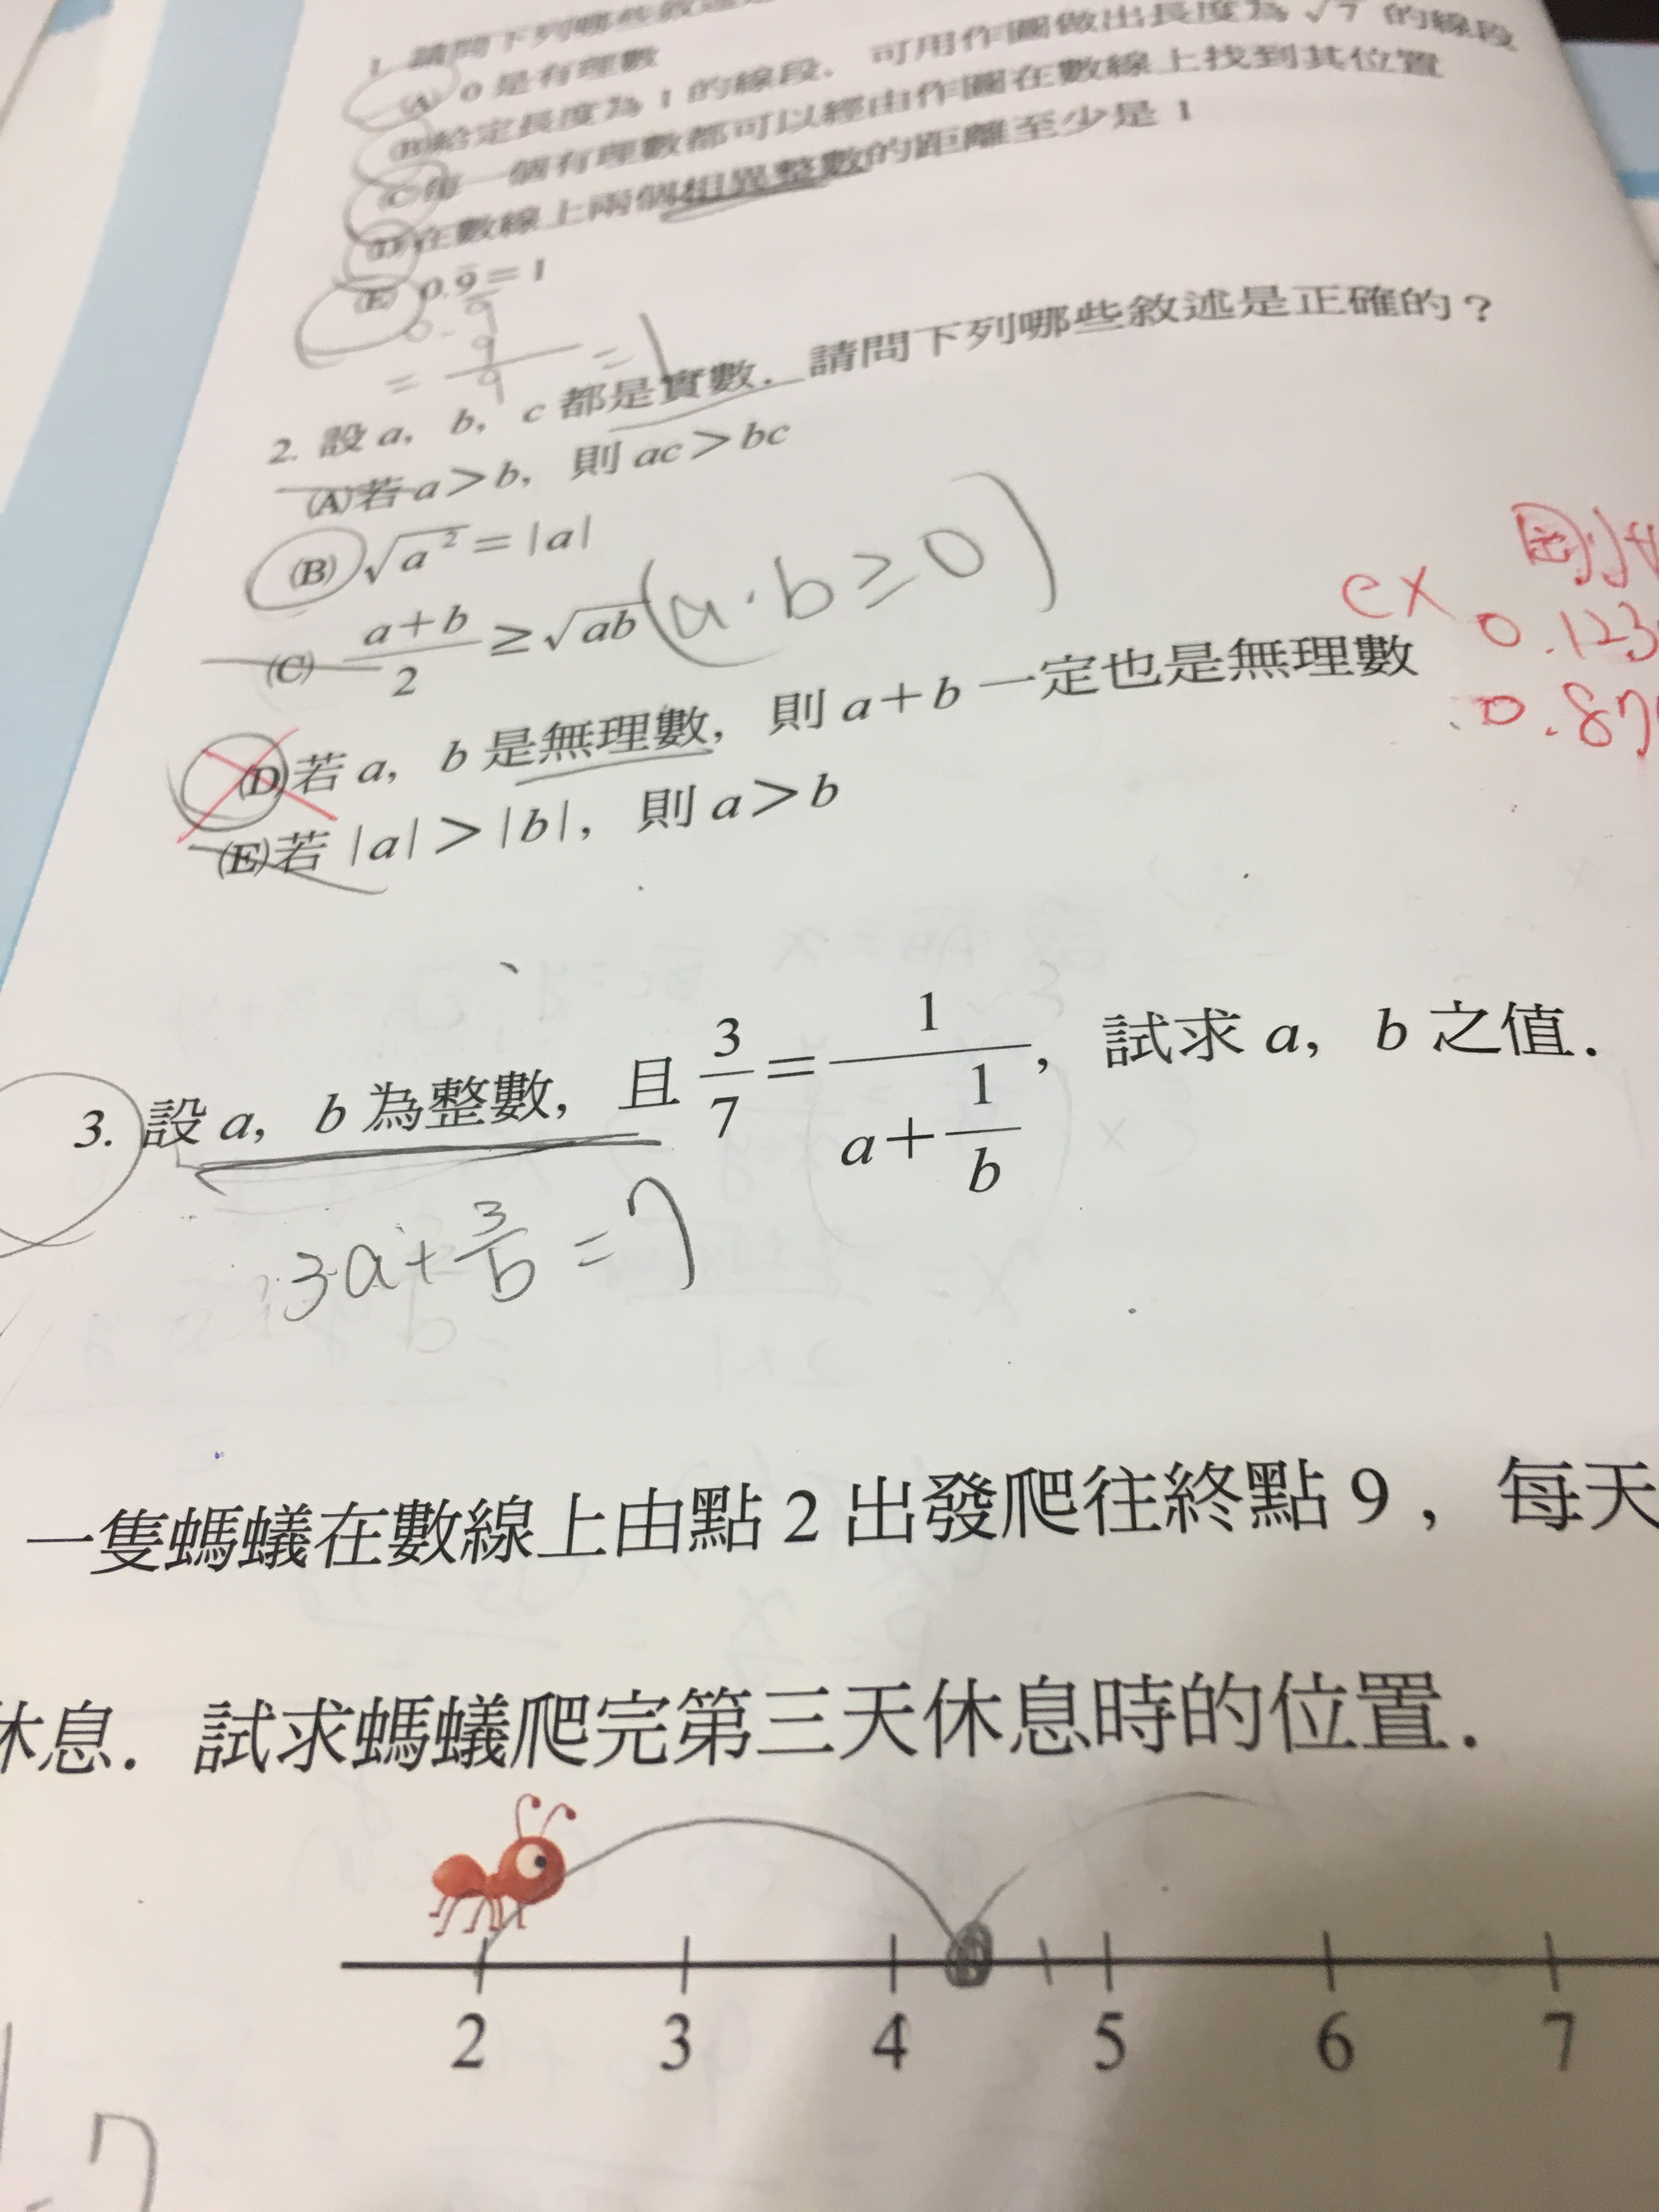 1. 請問下列哪些敘述
(A) 0 是有理數
(B)給定長度為 1 的線段，可用作圖做出長度為 √7 的線段
(C)每一個有理數都可以經由作圖在數線上找到其位置
(D)在數線上兩個相異整數的距離至少是 1
(E) 0.9̅＝1
＝ 9/9 ＝1
2. 設 a，b，c 都是實數．請問下列哪些敘述是正確的？
(A)若 a＞b，則 ac＞bc
(B) √a²＝|a|
(C) (a＋b)/2 ≥ √ab (a·b ≥ 0)
(D)若 a，b 是無理數，則 a＋b 一定也是無理數
ex
0.123
0.87
(E)若 |a|＞|b|，則 a＞b
3. 設 a，b 為整數，且 3/7＝1/(a＋1/b)，試求 a，b 之值．
3a+3/b=7
一隻螞蟻在數線上由點 2 出發爬往終點 9，每天
休息．試求螞蟻爬完第三天休息時的位置．
2 3 4 5 6 7